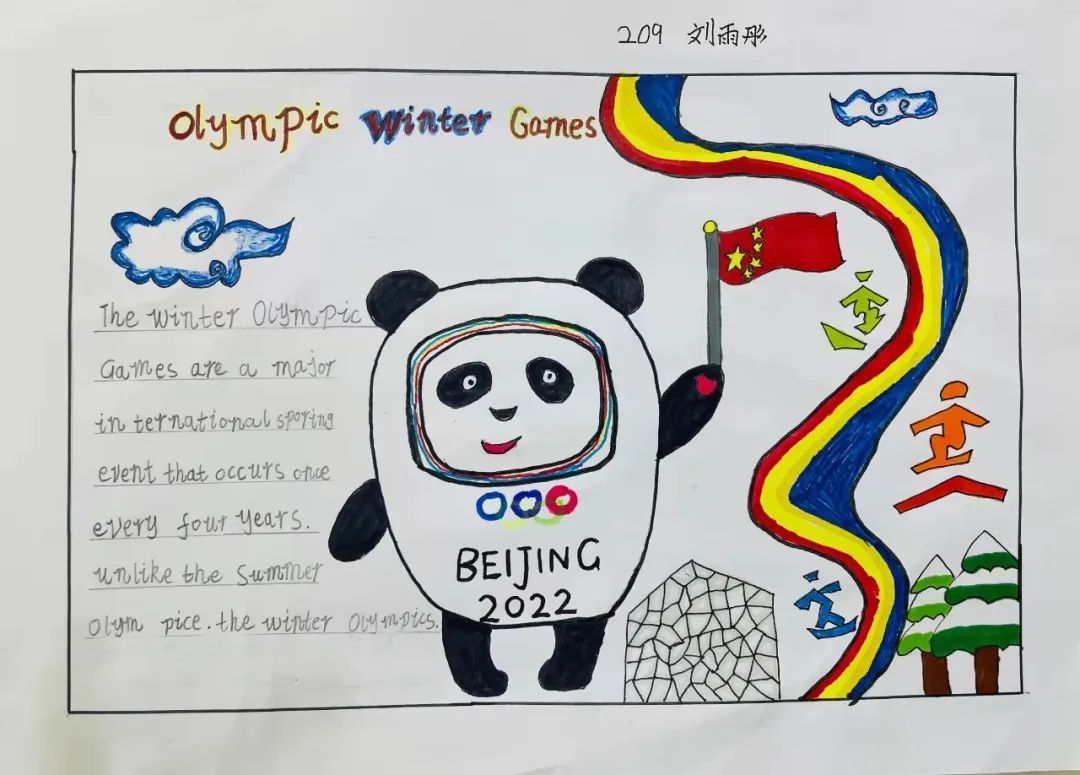 209 刘雨彤
Olympic Winter Games
The Winter Olympic
Games are a major
in ternational sporing
event that occurs once
every four years.
unlike the Summer
Olym pice. the winter Olympics.
BEIJING
2022